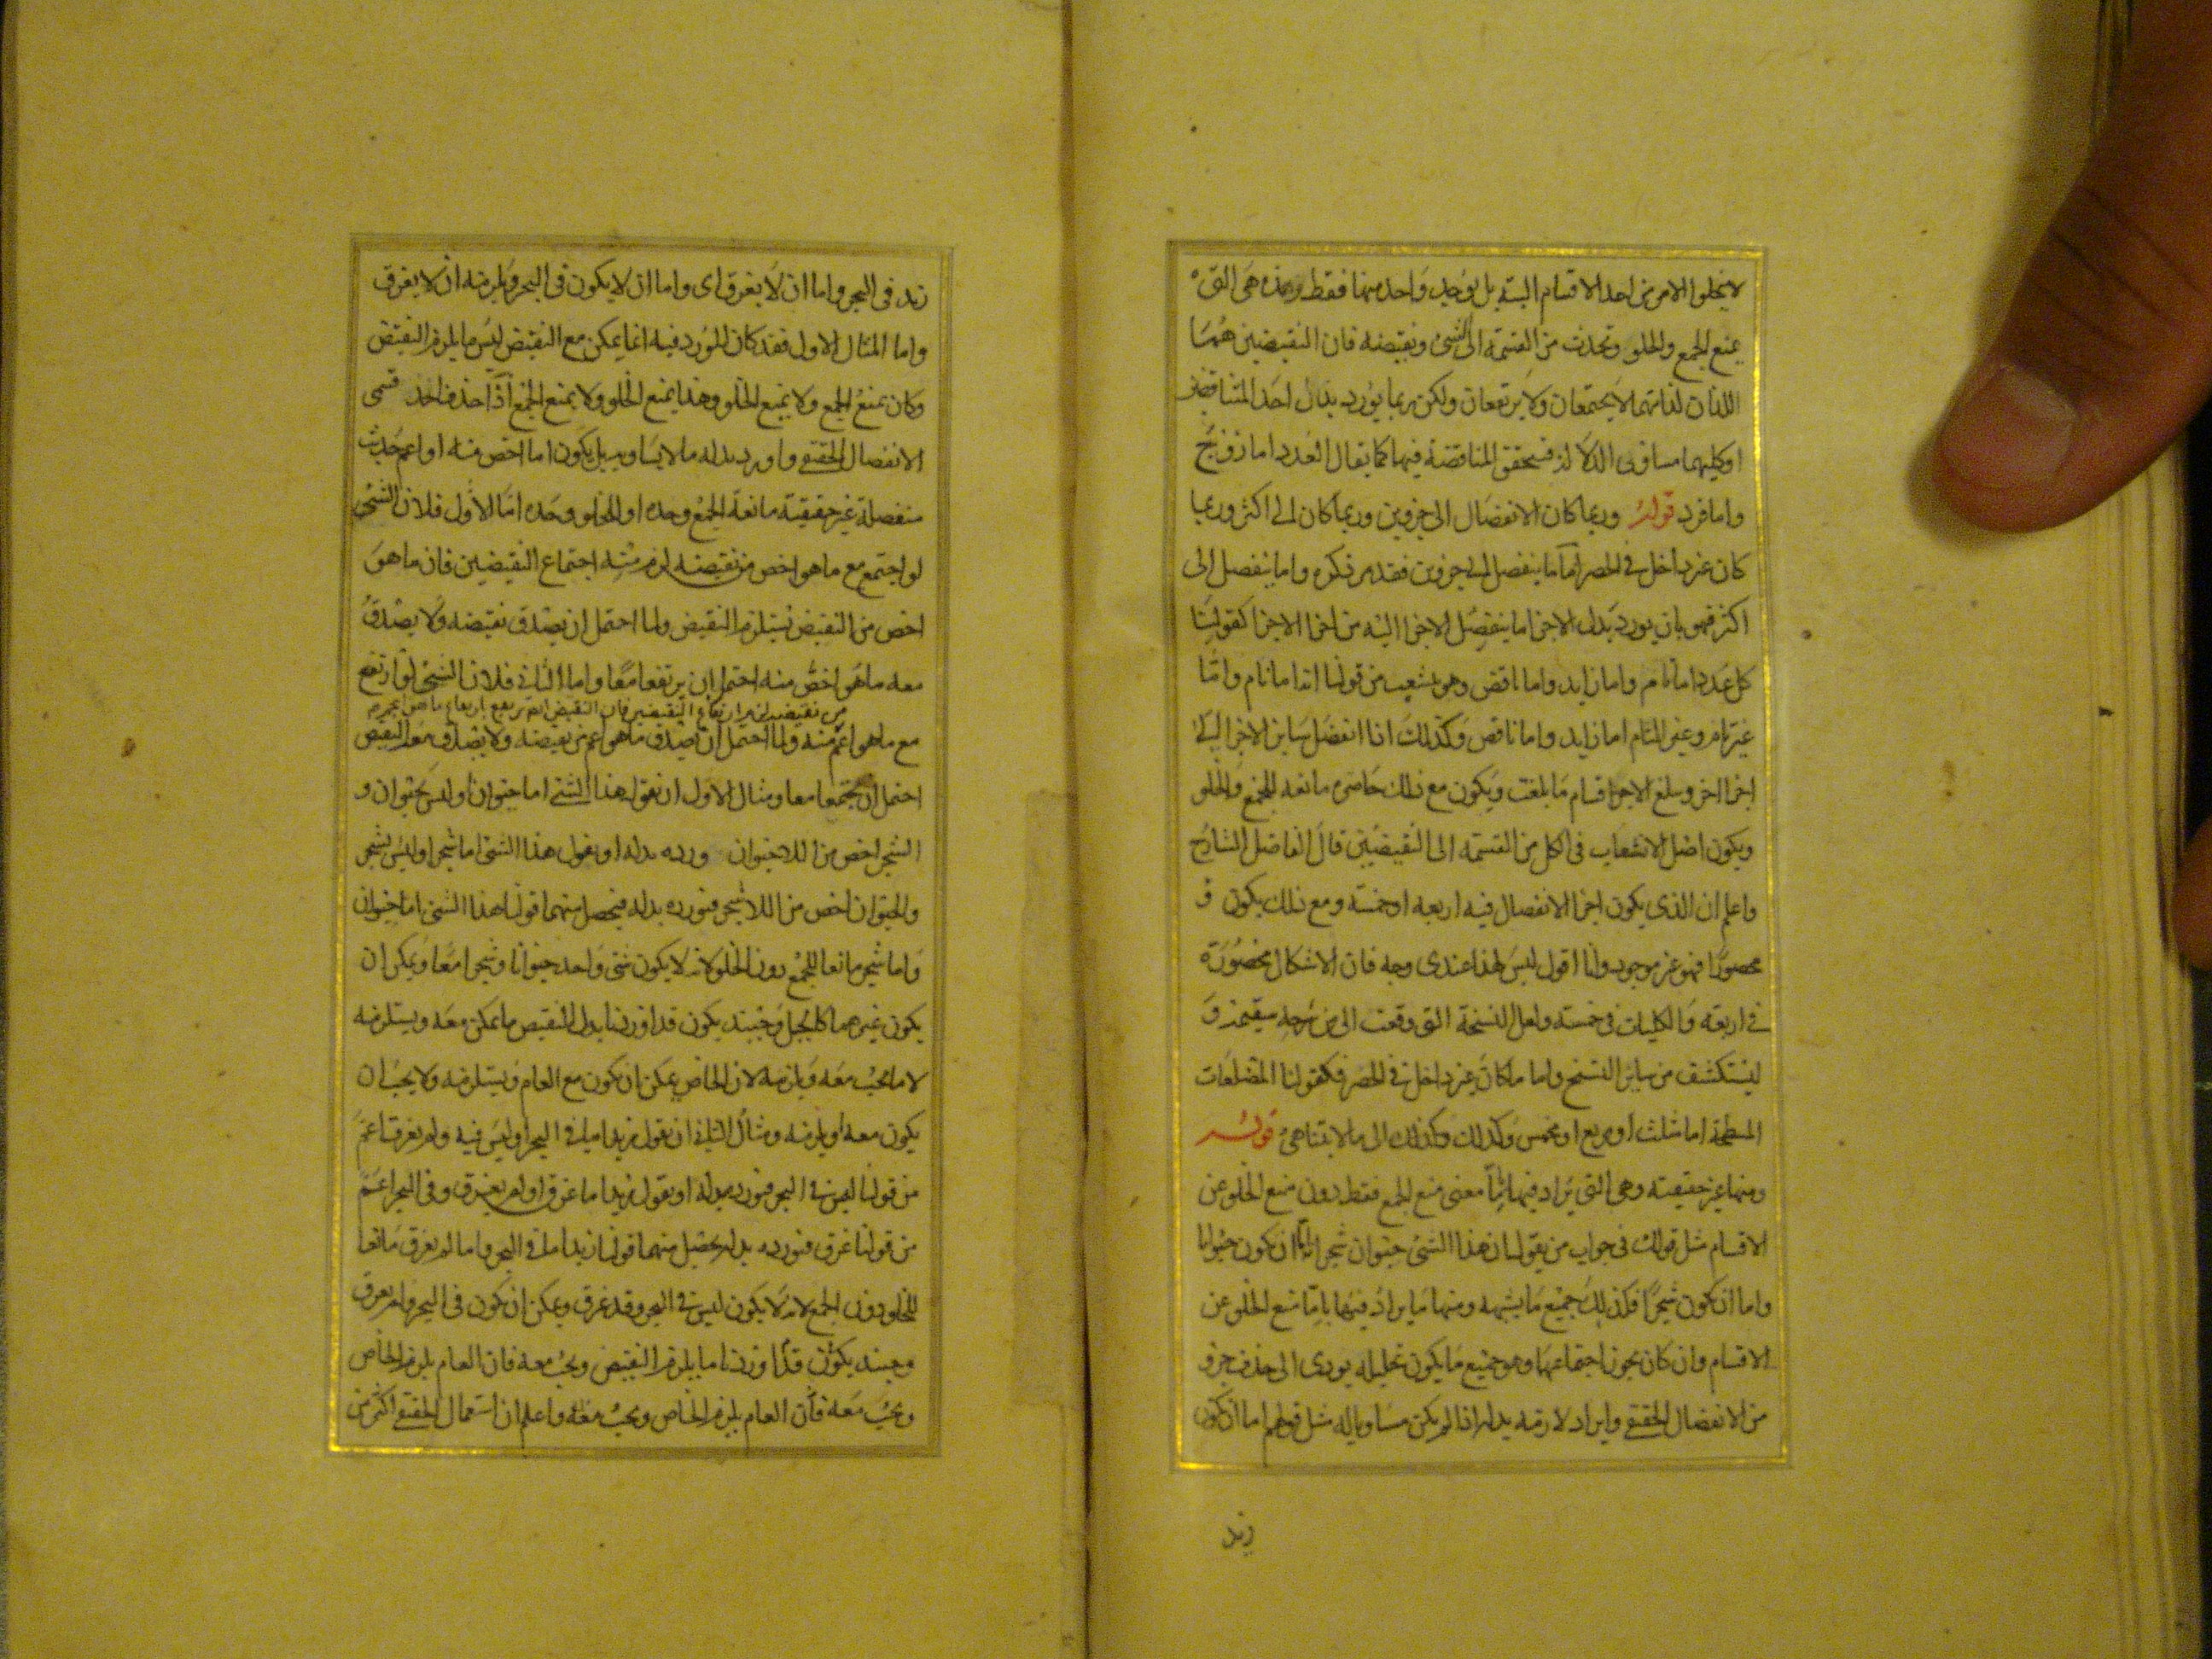 لا يخلوا الامر من احد الاقسام البتة بل يوجد واحد منها فقط وهذه هى التى
يمنع الجمع والخلو وتحدث من القسمة الى الشئ ونقيضه فان النقيضين هما
اللذان لذاتهما لا يجتمعان ولا يرتفعان ولكن ربما يورد بدل احد المتناقضين
او كليهما مساوى الدلالة فتحقق المناقضة فيها كما يقال العدد اما زوج
واما فرد قوله وربما كان الانفصال الى جزوين وربما كان الى اكثر وربما
كان غير داخل فى الحصر اما ما ينفصل الى جزوين فقد مر ذكره واما ينفصل الى
اكثر فهو بان يورد بدل الاجزا ما ينفصل الاجزا اليه من اجزا الاجزا كقولنا
كل عدد اما تام واما زايد واما ناقص وهو يشعب من قولنا انه اما تام واما
غير تام وغير التام اما زايد واما ناقص وكذلك اذا انفصل ساير الاجزا الى
اجزا اخر وبلغ الاجزا اقسام ما بلغت ويكون مع ذلك حاضره مانعه للجمع والخلو
ويكون اصل الانشعاب فى الكل من القسمة الى النقيضين قال الفاضل الشارح
واعلم ان الذى يكون اجزا الانفصال فيه اربعه او خمسة ومع ذلك يكون
محصورا فهو غير موجود وانا اقول ليس لهذا عندى وجه فان الاشكال محصورة
فى اربعة والكليات فى خمسة ولعل النسخة التى وقعت الى من شرحه سقيمة و
ليستكشف من ساير النسخ واما ما كان غير داخل فى الحصر فكقولنا المضلعات
المسطحة اما مثلث او مربع او مخمس وكذلك وكذلك الى ما لا يتناهى قوله
ومنها غير حقيقية وهى التى يراد فيها باما معنى منع الجمع فقط دون منع الخلو عن
الاقسام مثل قولك فى جواب من يقول ان هذا الشئ حيوان شجر انه اما ان يكون حيوانا
واما ان يكون شجرا فكذلك جميع ما يشبهه ومنها ما يراد فيها باما منع الخلو عن
الاقسام وان كان يجوز اجتماعها وهو جميع ما يكون تحليله يودى الى حذف جزو
من الانفصال الحقيقى وايراد لازمه بدله اذا لم يكن مساويا له مثل قولهم اما ان يكون
زيد
زيد فى البحر واما ان لا يغرق اى واما ان لا يكون فى البحر ويلزمه ان لا يغرق
واما المثال الاول فقد كان المورد فيه انما يمكن مع النقيض ليس ما يلزم النقيض
وكان يمنع الجمع ولا يمنع الخلو وهذا يمنع الخلو ولا يمنع الجمع اذا حذف احد قسمى
الانفصال الحقيقى واورد بدله ما لا يساويه بل يكون اما اخص منه او اعم حدث
منفصلة غير حقيقية مانعة الجمع وحده او الخلو وحده اما الاول فلان الشئ
لو اجتمع مع ما هو اخص من نقيضه لزم منه اجتماع النقيضين فان ما هو
اخص من النقيض يستلزم النقيض ولما احتمل ان يصدق نقيضه ولا يصدق
معه ما هو اخص منه احتمل ان يرتفعا معا واما الثانى فلان الشئ لو ارتفع
من نقيضه لزم ارتفاع النقيضين فان النقيض يرتفع بارتفاع ما هو اعم
مع ما هو اعم منه ولما احتمل ان يصدق ما هو اعم من نقيضه ولا يصدق معه النقيض
احتمل ان يجتمعا معا ومثال الاول ان نقول هذا الشئ اما حيوان او ليس بحيوان و
الشجر اخص من اللاحيوان ورده بدله او نقول هذا الشئ اما شجر او ليس بشجر
والحيوان اخص من اللاشجر فنورده بدله فيحصل منهما قولنا هذا الشئ اما حيوان
واما شجر مانعا للجمع دون الخلو لانه لا يكون شئ واحد حيوانا وشجرا معا ويمكن ان
يكون غيرهما كالجبل وحينيذ يكون قد اوردنا بدل النقيض ما يمكن معه ويستلزمه
لا ما يجب معه ويلزمه لان الخاص يمكن ان يكون مع العام ويستلزمه ولا يجب ان
يكون معه او يلزمه ومثال الثانى ان نقول زيد اما فى البحر او ليس فيه ولم يغرق اعم
من قولنا ليس فى البحر فنورده بدله او نقول زيد اما غرق او لم يغرق وفى البحر اعم
من قولنا غرق فنورده بدله يحصل منهما قولنا زيد اما فى البحر واما لم يغرق مانعا
للخلو دون الجمع لانه لا يكون ليس فى البحر وقد غرق ويمكن ان يكون فى البحر ولم يغرق
وحينيذ يكون قد اوردنا ما يلزم النقيض ويجب معه فان العام يلزم الخاص
ويجب معه فان العام يلزم الخاص ويجب معه واعلم ان استعمال الحقيقى اكثر من